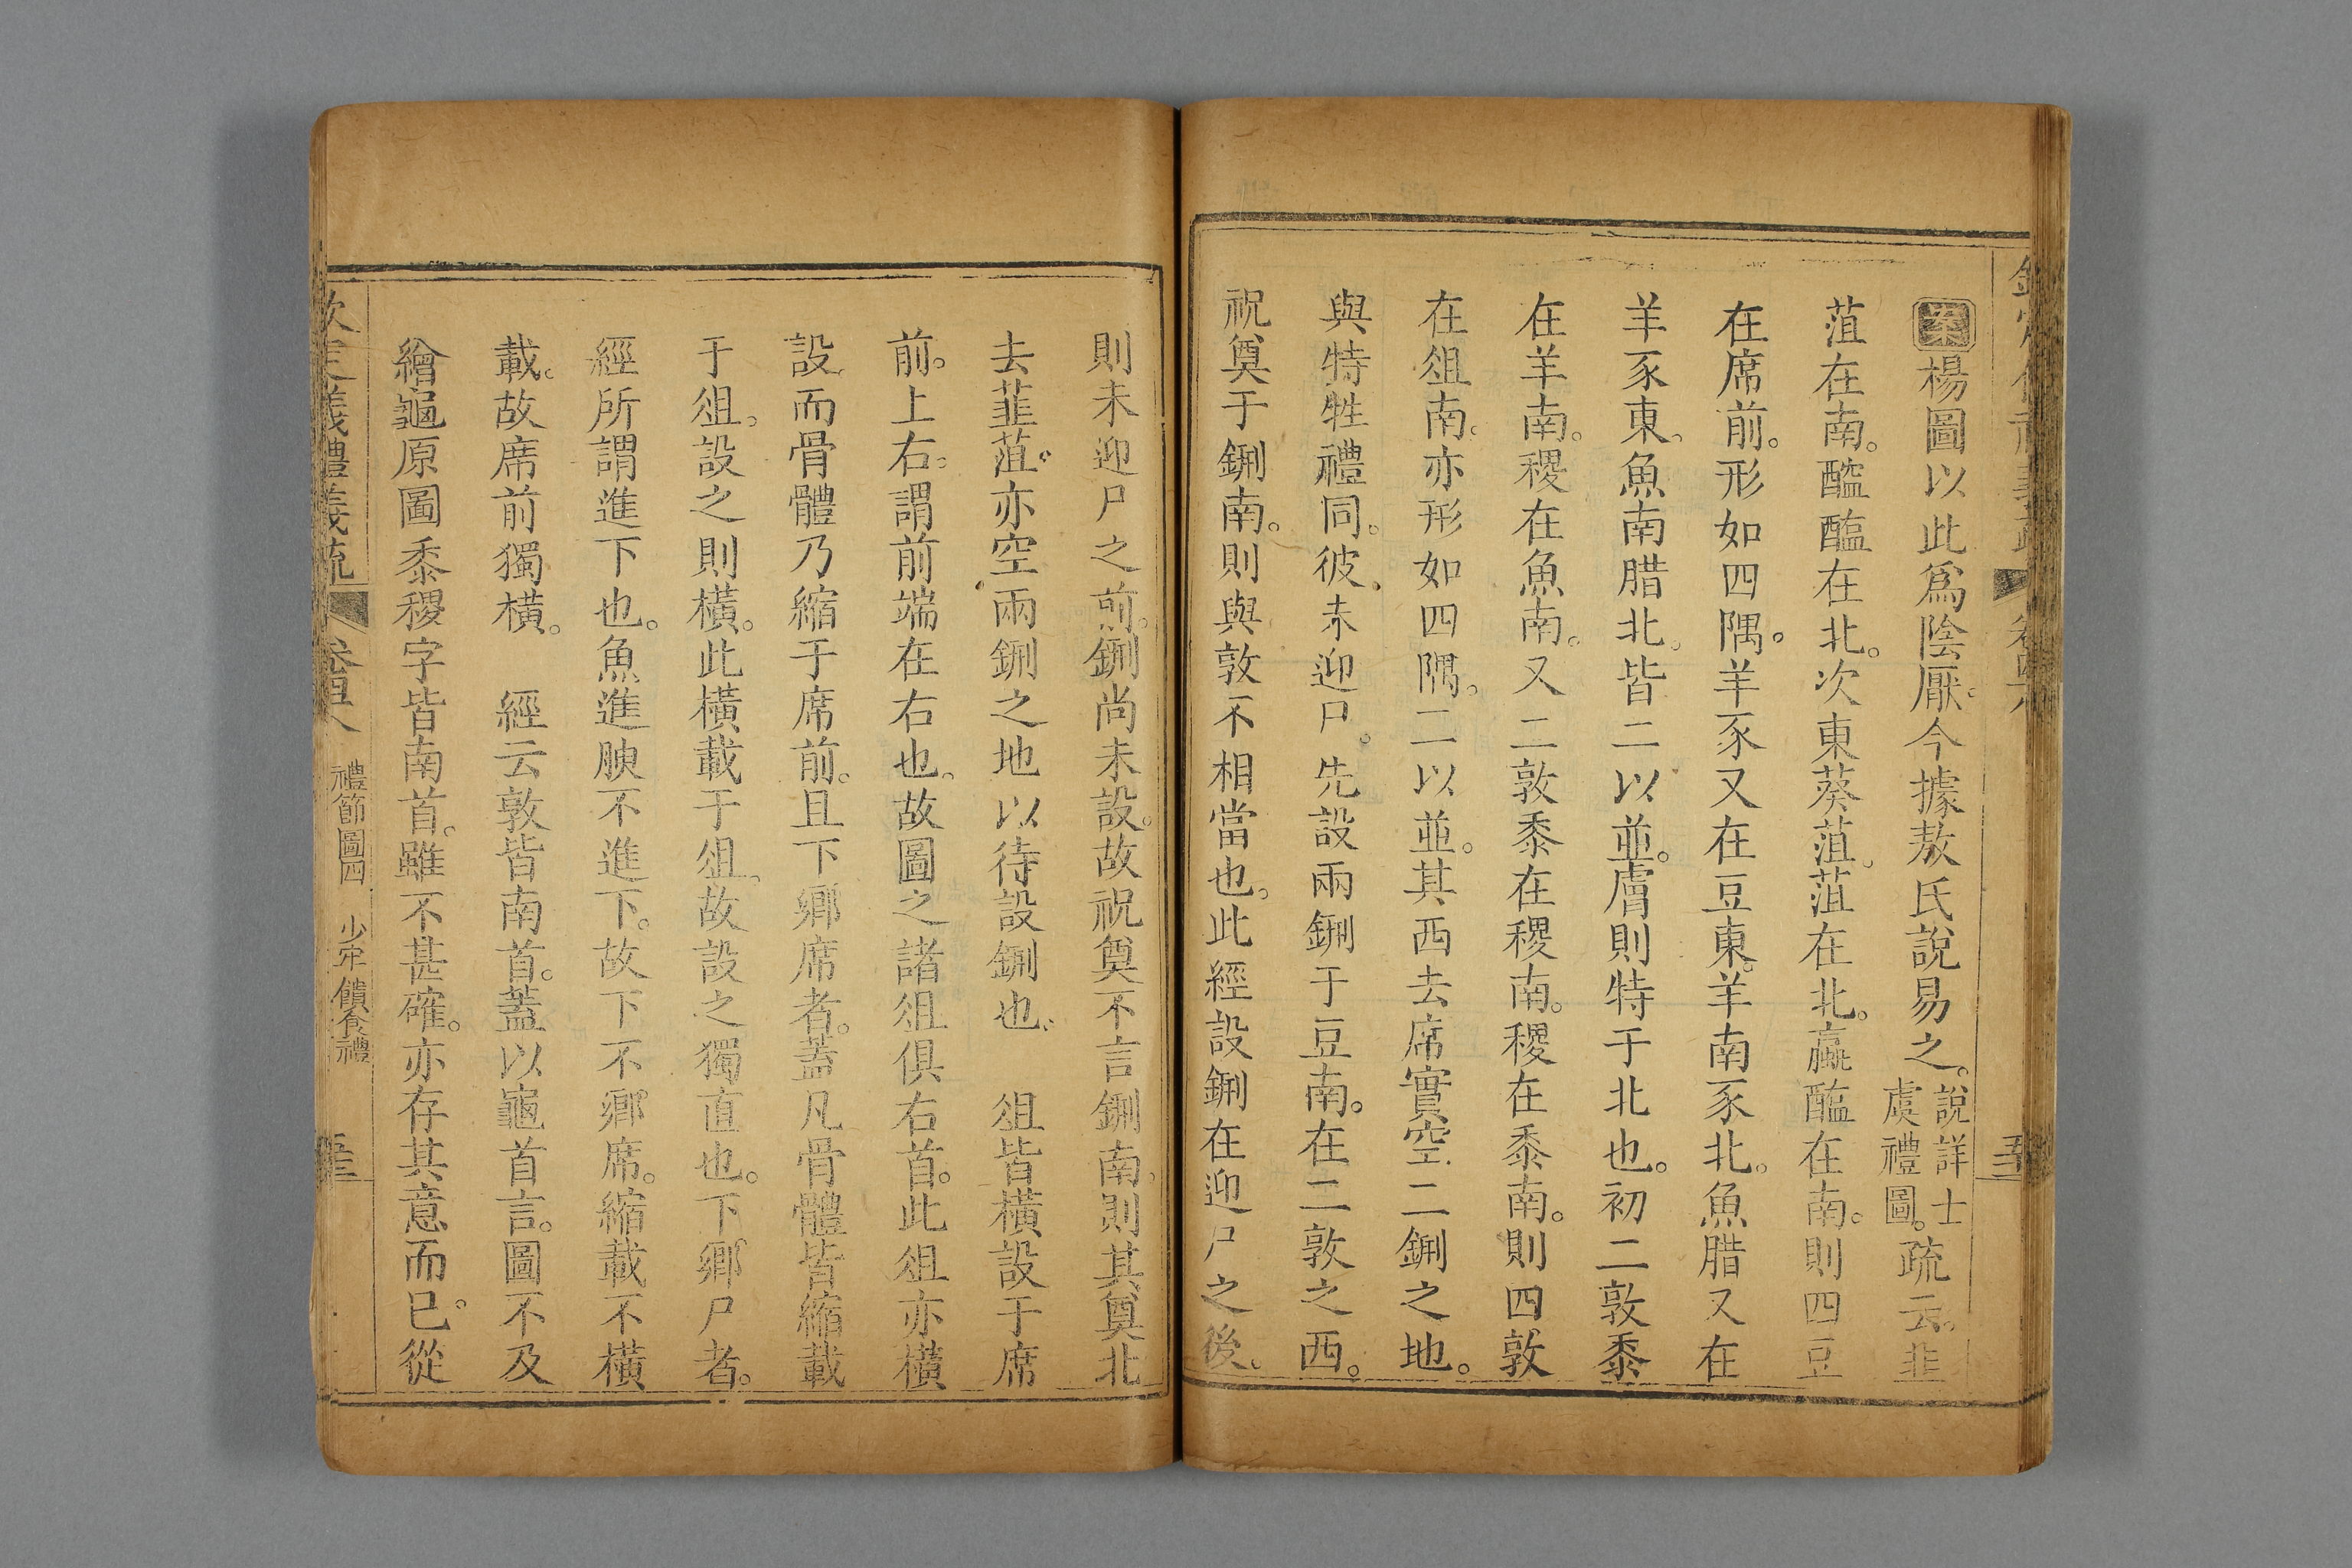 案楊圖以此爲陰厭。今據敖氏說易之。說詳士虞禮圖。疏云。韭
菹在南。醓醢在北。次東葵菹。菹在北。蠃醢在南。則四豆
在席前。形如四隅。羊豕又在豆東。羊南豕北。魚腊又在
羊豕東。魚南腊北。皆二以並。膚則特于北也。初二敦黍
在羊南。稷在魚南。又二敦黍在稷南。稷在黍南。則四敦
在俎南。亦形如四隅。二以並。其西去席實空二鉶之地。
與特牲禮同。彼未迎尸。先設兩鉶于豆南。在二敦之西。
祝奠于鉶南。則與敦不相當也。此經設鉶在迎尸之後。
則未迎尸之前。鉶尚未設。故祝奠不言鉶南。則其奠北
去韭菹。亦空兩鉶之地以待設鉶也。 俎皆橫設于席
前。上右。謂前端在右也。故圖之諸俎俱右首。此俎亦橫
設而骨體乃縮于席前。且下鄉席者。蓋凡骨體皆縮載
于俎。設之則橫。此橫載于俎。故設之獨直也。下鄉尸者。
經所謂進下也。魚進腴不進下。故下不鄉席。縮載不橫
載。故席前獨橫。 經云敦皆南首。蓋以龜首言。圖不及
繪龜原圖黍稷字皆南首。雖不甚確。亦存其意而已。從
欽定義禮義疏 卷四八 禮節圖四 少牢饋食禮 五三